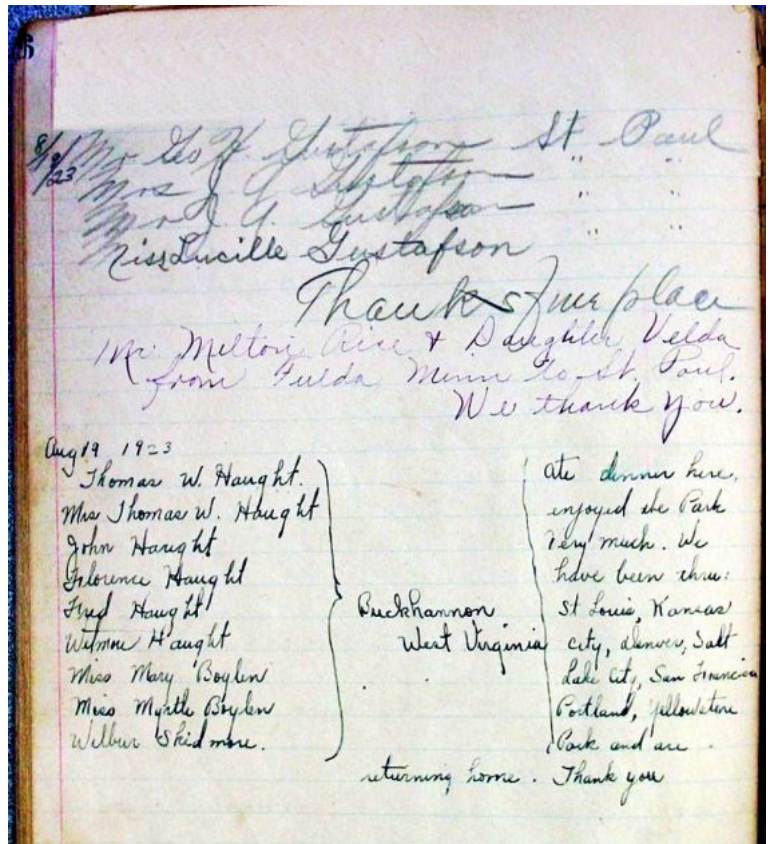 6
8/19/23 Mr Geo H. Gustafson St Paul
Mrs J. A. Gustafson " "
Mr J. A. Gustafson " "
Miss Lucille Gustafson
Thanks fine place
Mr. Melton Rice & Daughter Velda
from Fulda Minn to St. Paul.
We thank you.
Aug 19 1923
Thomas W. Haught.
Mrs Thomas W. Haught
John Haught
Florence Haught
Fred Haught
Haught
Miss Mary Boylen
Miss Myrtle Boylen
Wilbur Skidmore.
Buckhannon
West Virginia
Ate dinner here,
enjoyed the Park
very much. We
have been thru:
St Louis, Kansas
City, Denver, Salt
Lake City, San Francisco
Portland, Yellowstone
Park and are
returning home. Thank you